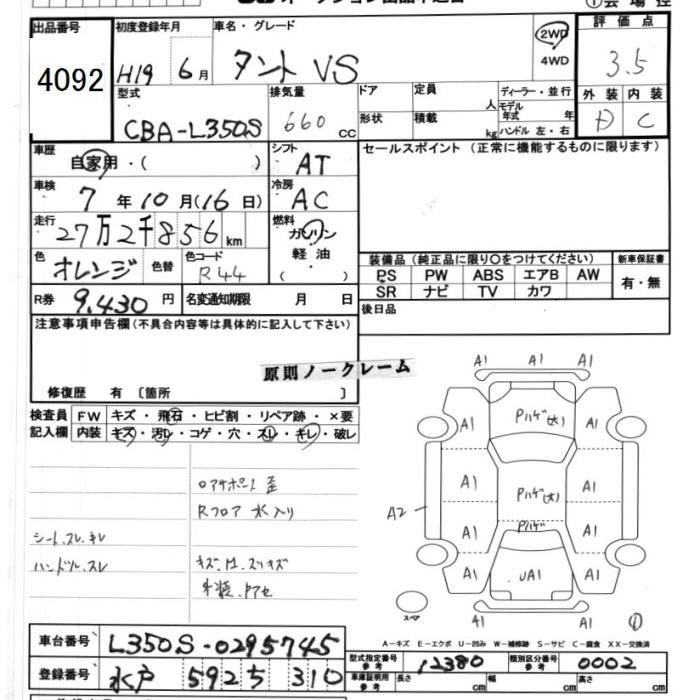 出品番号
4092
初度登録年月
H19 6月
車名・グレード
タント VS
2WD
4WD
評価点
3.5
外装 内装
D C
型式
CBA-L350S
排気量
660 cc
ドア
定員
人
形状
積載
kg
ディーラー・並行
モデル年式 年
ハンドル 左・右
車歴
自家用・( )
シフト
AT
セールスポイント (正常に機能するものに限ります)
車検
7年10月(16日)
冷房
AC
走行
27万2千856km
燃料
ガソリン
軽油
( )
色
オレンジ
色替
色コード
R44
装備品 (純正品に限り〇をつけてください)
新車保証書
PS PW ABS エアB AW
有・無
SR ナビ TV カワ
R券 9.430円
名変通知期限 月 日
後日品
注意事項申告欄(不具合内容等は具体的に記入して下さい)
原則ノークレーム
修復歴 有 〔箇所 〕
検査員
記入欄
FW キズ・飛石・ヒビ割・リペア跡・×要
内装 キズ・汚レ・コゲ・穴・スレ・キレ・破レ
コアサポート 歪
Rフロア 水入り
シートスレ、キレ
ハンドル、スレ
キズ、凹、スリキズ
外装、Pアセ
A1 A1 A1
A1 Pハゲ(大) A1
A1 Pハゲ(大) A1
A2
Pハゲ
A1 A1
A1 UA1 A1
スペア
A1 A1
A-キズ E-エクボ U-凹み W-補修跡 S-サビ C-腐食 XX-交換済
車台番号 L350S-0295745
登録番号 水戸 592 5 310
型式指定番号
参考
12380
類別区分番号
参考
0002
車庫証明用
参考
長さ cm
幅 cm
高さ cm